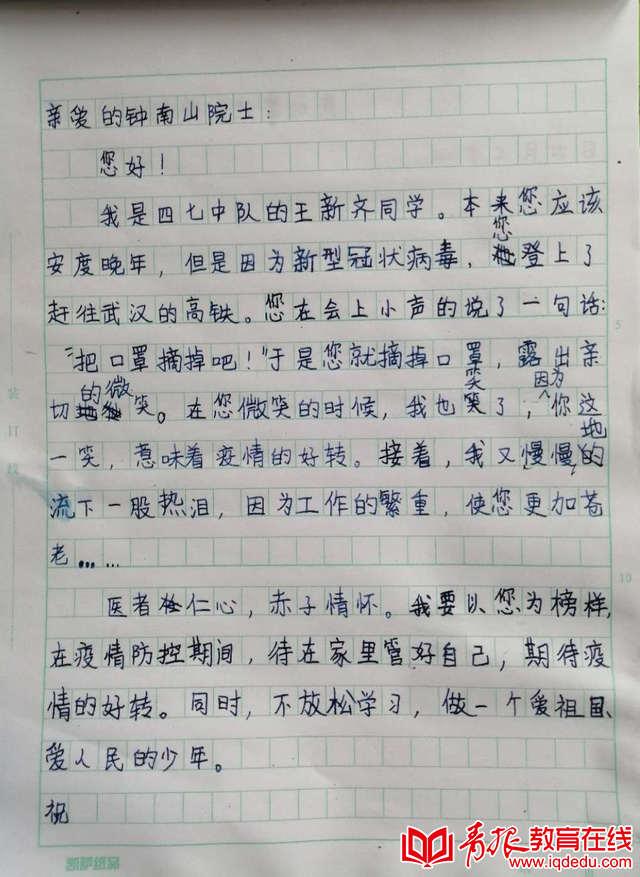 亲爱的钟南山院士：
您好！
我是四七中队的王新齐同学。本来您应该
安度晚年，但是因为新型冠状病毒，您登上了
赶往武汉的高铁。您在会上小声的说了一句话：
“把口罩摘掉吧！”于是您就摘掉口罩，露出亲
切的微笑。在您微笑的时候，我也笑了，因为你这
一笑，意味着疫情的好转。接着，我又慢慢地
流下一股热泪，因为工作的繁重，使您更加苍
老……
医者仁心，赤子情怀。我要以您为榜样，
在疫情防控期间，待在家里管好自己，期待疫
情的好转。同时，不放松学习，做一个爱祖国、
爱人民的少年。
祝
装订线
5
10
凯萨纸品
青报教育在线
www.iqdedu.com